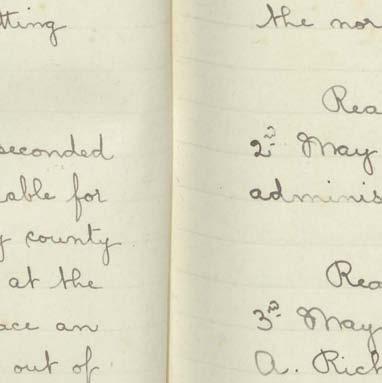 tting
seconded
able for
y county
at the
ace an
out of
the nor
Rea
2nd May
adminis
Rea
3rd May
A. Rich